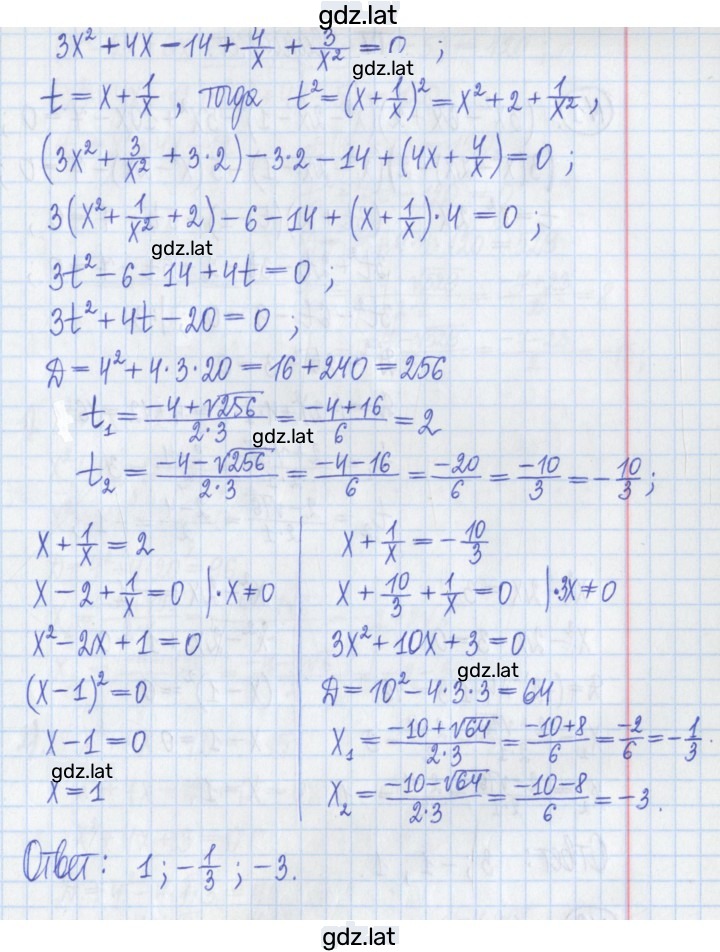 gdz.lat
3x² + 4x − 14 + 4/x + 3/x² = 0 ;
gdz.lat
t = x + 1/x , тогда t² = (x + 1/x)² = x² + 2 + 1/x² ;
(3x² + 3/x² + 3·2) − 3·2 − 14 + (4x + 4/x) = 0 ;
3(x² + 1/x² + 2) − 6 − 14 + (x + 1/x)·4 = 0 ;
gdz.lat
3t² − 6 − 14 + 4t = 0 ;
3t² + 4t − 20 = 0 ;
Д = 4² + 4·3·20 = 16 + 240 = 256
t₁ = (−4 + √256)/(2·3) = (−4 + 16)/6 = 2
gdz.lat
t₂ = (−4 − √256)/(2·3) = (−4 − 16)/6 = −20/6 = −10/3 = −10/3 ;
x + 1/x = 2
x − 2 + 1/x = 0 |·x ≠ 0
x² − 2x + 1 = 0
(x − 1)² = 0
x − 1 = 0
gdz.lat
x = 1
x + 1/x = −10/3
x + 10/3 + 1/x = 0 |·3x ≠ 0
3x² + 10x + 3 = 0
gdz.lat
Д = 10² − 4·3·3 = 64
x₁ = (−10 + √64)/(2·3) = (−10 + 8)/6 = −2/6 = −1/3.
x₂ = (−10 − √64)/(2·3) = (−10 − 8)/6 = −3.
Ответ: 1 ; −1/3 ; −3.
gdz.lat